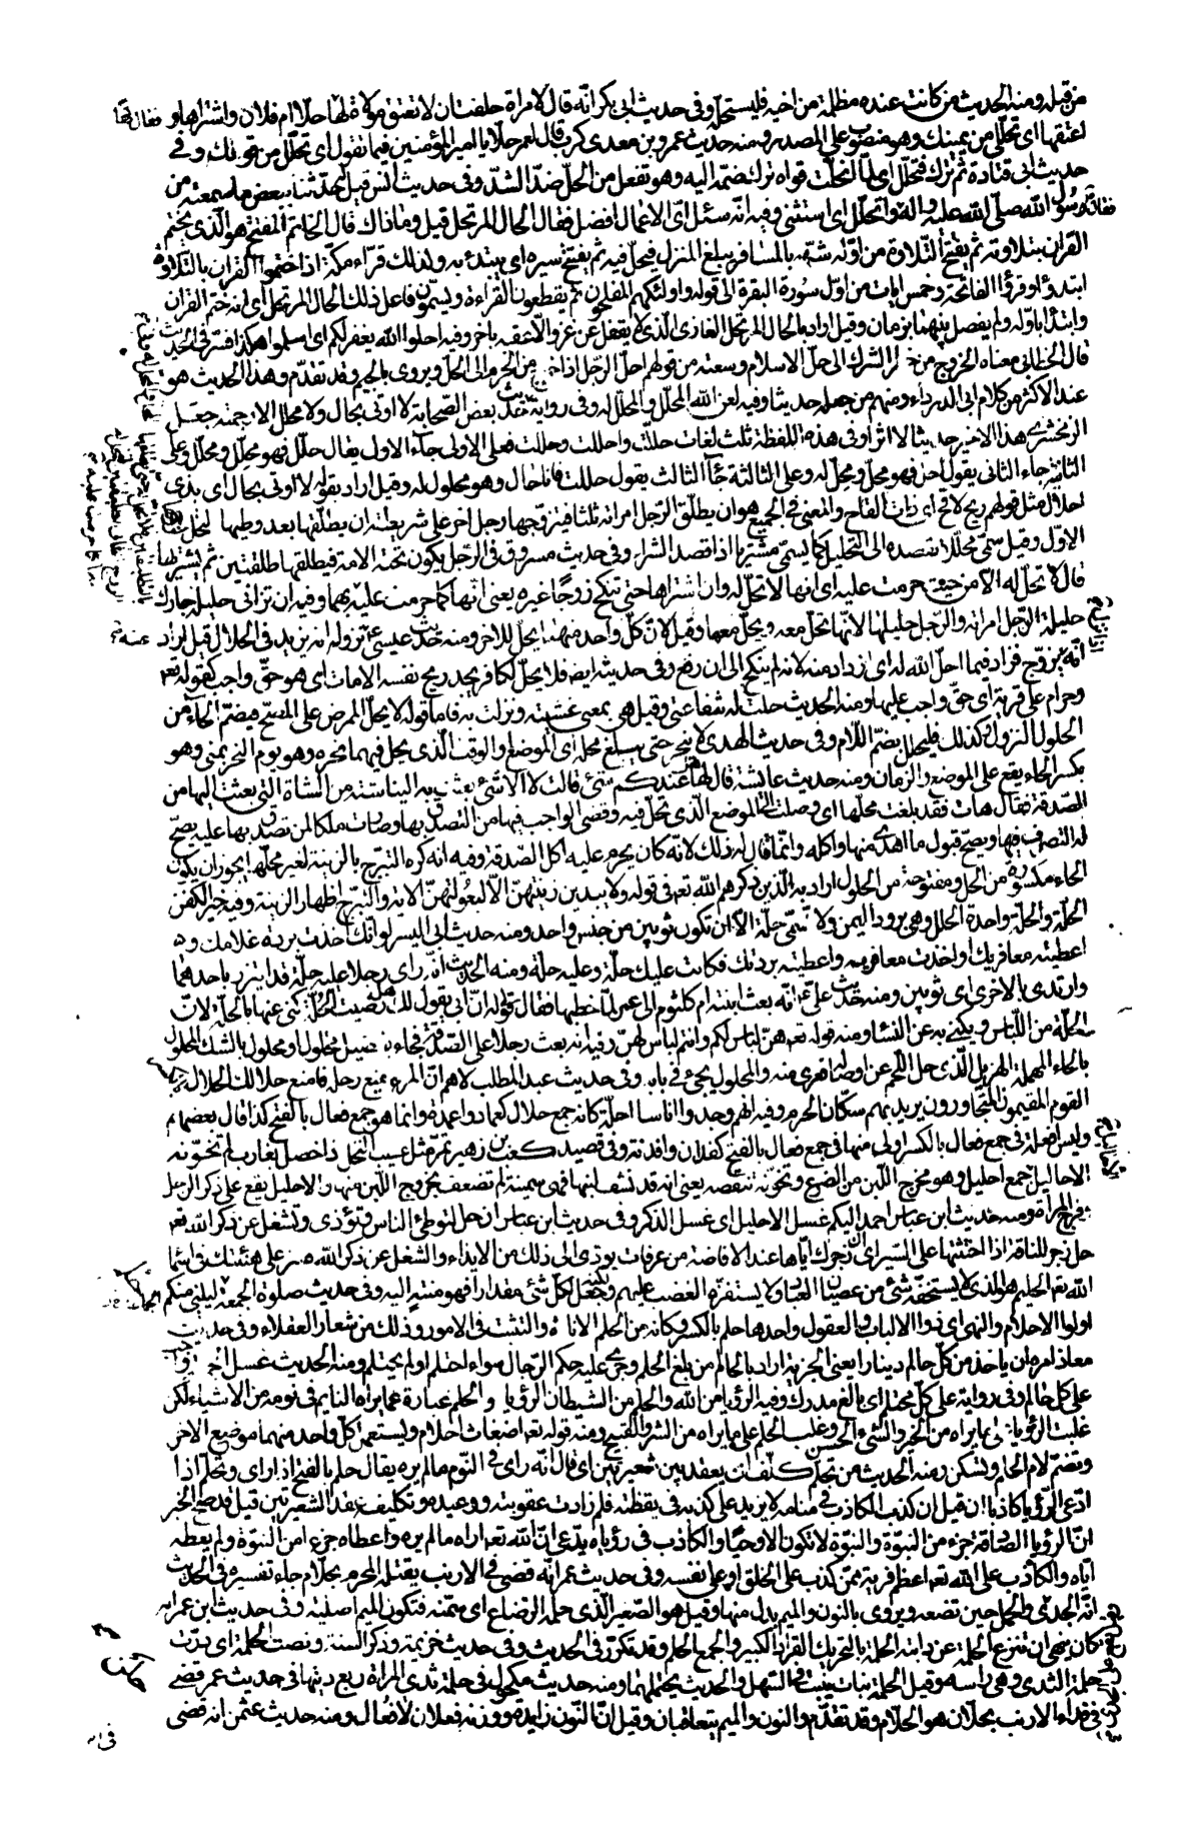 من قبله ومنه الحديث من كانت عنده مظلمة من اخيه فليستحله وفى حديث ابى بكر انّه قال لامراة حلفت ان لا تعتق مولاة لها حلا ام فلان واشتراها و
اعتقها اى تحلّلى من يمينك وهو منصوب على المصدر ومنه حديث عمرو بن معدى كرب قال لعمر حلا يا امير المؤمنين فيما تقول اى تحلّل من قولك وفى
حديث ابى قتادة ثم ترك فتحلّل اى لما انحلّت قواه ترك ضمّه اليه وهو تفعل من الحلّ ضدّ الشدّ وفى حديث انس قيل له حدّثنا ببعض ما سمعته من
رسول الله صلى الله عليه واله واتحلّل اى استثنى وفيه انّه سئل اىّ الاعمال افضل فقال الحال المرتحل قيل وما ذاك قال الخاتم المفتتح هو الّذى يختم
القران بتلاوته ثم يفتتح التلاوة من اوّله شبّهه بالمسافر يبلغ المنزل فيحلّ فيه ثم يفتتح سيره اى يبتدء به ولذلك قرّاء مكة اذا ختموا القران بالتلاوة
ابتدؤا وقرؤا الفاتحة وخمس ايات من اوّل سورة البقرة الى قوله واولئك هم المفلحون ثم يقطعون القراءة ويسمّون فاعل ذلك الحال المرتحل اى انه ختم القران
وابتدا باوّله ولم يفصل بينهما بزمان وقيل اراد بالحال المرتحل الغازى الّذى لا يقفل عن غزو الّا عقبه باخر وفيه احلوا الله يغفر لكم اى اسلموا هكذا فسّر فى الحديث
قال الخطابى معناه الخروج من الشرك الى حلّ الاسلام وسعته من قولهم احلّ الرجل اذا خرج من الحرم الى الحلّ ويروى بالجيم وقد تقدّم وهذا الحديث هو
عند الاكثر من كلام ابى الدرداء ومنهم من جعله حديثا وفيه لعن الله المحلّل والمحلّل له وفى رواية بعض الصحابة لا اوتى بحال ولا محلّل الا رجمته جعل
الزمخشرى هذا الاخير حديثا لا اثرا وفى هذه اللفظة ثلث لغات حلّلت واحللت وحللت فعلى الاولى جاء الاول يقال حلّل فهو محلّل ومحلّل له وعلى
الثانية جاء الثانى يقول احلّ فهو محلّ ومحلّ له وعلى الثالثة جاء الثالث يقول حللت فانا حال وهو محلول له وقيل اراد بقوله لا اوتى بحال اى بذى
احلال مثل قولهم ريح لاقح اى ذات القاح والمعنى فى الجميع هو ان يطلّق الرّجل امراته ثلثا فيتزوّجها رجل اخر على شريطة ان يطلّقها بعد وطيها لتحل
الاوّل وقيل سمّى محلّلا بقصده الى التحليل كما يسمّى مشتريا اذا قصد الشراء وفى حديث مسروق فى الرّجل يكون تحته الامة فيطلقها طلقتين ثم يشتريها
قال لا تحلّ له الّا من حيث حرمت عليه اى انها لا تحلّ له وان اشتراها حتى تنكح زوجًا غيره يعنى انها كما حرمت عليه بهما وفيه ان تزانى حليلة جارك
حليلة الرّجل امراته والرّجل حليلها لانّها تحلّ معه ويحلّ معها وقيل لانّ كلّ واحد منهما يحلّ للاخر ومنه حديث عيسى عند نزوله انه يزيد فى الحلال قيل اراد
انّه يتزوّج فزاد فيما احلّ الله له اى ازداد منه لانه لم ينكح الى ان رفع وفى حديثه ايضا فلا يحلّ لكافر يجد ريح نفسه الا مات اى هو حقّ واجب كقوله تعـ
وحرام على قرية اى حقّ واجب عليها ومنه الحديث حلت له شفاعتى وقيل هى بمعنى غشيته ونزلت به فاما قوله لا يحلّ الممرض على المصحّ فبضمّ الحاء من
الحلول النزول وكذلك فليحلل بضمّ اللام وفى حديث الهدى لا ينحر حتى يبلغ محلّه اى الموضع او الوقت الّذى يحل فيهما نحره وهو يوم النحر بمنى وهو
بكسر الحاء يقع على الموضع والزمان ومنه حديث عايشة قال لها هل عندكم شئ قالت لا الا شئ بعثت به الينا نسيبة من الشاة التى بعثت اليها من
الصدقة فقال هات فقد بلغت محلّها اى وصلت الى الموضع الّذى تحلّ فيه وقضى الواجب فيها من التصدق بها وصارت ملكا لمن تصدّق بها عليه يصحّ
له التصرف فيها ويصحّ قبول ما اهدى منها واكله وانّما قال له ذلك لانّه كان يحرم عليه اكل الصّدقة وفيه انه كره التبرّج بالزينة لغير محلّها يجوز ان يكون
الحاء مكسورة من الحل ومفتوحة من الحلول اراد به الّذين ذكرهم الله تعـ فى قوله ولا يبدين زينتهنّ الّا لبعولتهنّ الاية والتبرّج اظهار الزينة وفيه خير الكفن
الحلّة والحلّة واحدة الحلل وهى برود اليمن ولا تسمّى حلّة الّا ان تكون ثوبين من جنس واحد ومنه حديث ابى اليسر لو انّك اخذت بردة غلامك و
اعطيته معافريك او اخذت معافريه واعطيته بردتك فكانت عليك حلّة وعليه حلّة ومنه الحديث انّه راى رجلا عليه حلّة قد ايتزر باحدهما
وارتدى بالاخرى اى ثوبين ومنه حديث علىّ انّه بعث ابنته ام كلثوم الى عمر لمّا خطبها فقال قولى له انّ ابى يقول لك هل رضيت الحلّة كنى عنها بالحلّة لانّ
الحلّة من اللّباس ويكنى به عن النساء ومنه قوله تعـ هنّ لباس لكم وانتم لباس لهنّ وفيه انه بعث رجلا على الصّدقة فجاء بفصيل مخلول او محلول بالشك المحلول
بالحاء المهملة الهزيل الّذى حل اللّحم عن اوصاله فعرى منه والمحلول يجئ فى بابه وفى حديث عبد المطلب لاهم انّ المرء يمنع رحله فامنع حلالك الحلال
القوم المقيمون المتجاورون يريد بهم سكّان الحرم وفيه انهم وجدوا اناسا احلّة كانه جمع حلال كعماد واعمدة وانما هو جمع فعال بالفتح كذا قال بعضهم
وليس افعلة فى جمع فعال بالكسر اولى منها فى جمع فعال بالفتح كفدان وافدنة وفى قصيد كعب بن زهير تمرّ مثل عسيب النخل ذا خصل بغارب لم تخوّنه
الاحاليل جمع احليل وهو مخرج اللّبن من الضرع وتخوّنه تنقصه يعنى انه قد نشف لبنها فهى سمينة لم تضعف بخروج اللّبن منها والاحليل يقع على ذكر الرجل
وفرج المراة ومنه حديث ابن عباس احمد اليكم غسل الاحليل اى غسل الذكر وفى حديث ابن عباس ان حل لتوطئ الناس وتؤذى وتشغل عن ذكر الله تعـ
حل زجر للناقة اذا حثثتها على السّير اى ان زجرك ايّاها عند الافاضة من عرفات يودى الى ذلك من الايذاء والشغل عن ذكر الله فسر على هينتك فى اسما
الله تعـ الحليم هو الذى لا يستخفّه شئ من عصيان العباد ولا يستفزّه الغضب عليهم ولكنه جعل لكلّ شئ مقدارا فهو منتهٍ اليه وفى حديث صلوة الجمعة ليلينى منكم
اولوا الاحلام والنهى اى ذوا الالباب والعقول واحدها حلم بالكسر وكانه من الحلم الاناة والتثبت فى الامور وذلك من شعار العقلاء وفى حديث
معاذ امره ان ياخذ من كلّ حالم دينارا يعنى الجزية اراد بالحالم من بلغ الحلم وجرى عليه حكم الرّجال سواء احتلم او لم يحتلم ومنه الحديث غسل
على كل حالم وفى رواية على كلّ محتلم اى بالغ مدرك وفيه الرؤيا من الله والحلم من الشيطان الرؤيا والحلم عبارة عما يراه النايم فى نومه من الاشياء لكن
غلبت الرؤيا على ما يراه من الخير والشئ الحسن وغلب الحلم على ما يراه من الشر والقبيح ومنه قوله تعـ اضغاث احلام ويستعمل كلّ واحد منهما موضع الاخر
وتضمّ لام الحلم وتسكن ومنه الحديث من تحلم كلّف ان يعقد بين شعيرتين اى قال انّه راى فى النّوم ما لم يره يقال حلم بالفتح اذا راى وتحلّم اذا
ادّعى الرؤيا كاذبا ان قيل ان كذب الكاذب فى منامه لا يزيد على كذبه فى يقظته فلم زادت عقوبته ووعيده وتكليفه عقد الشعيرتين قيل قد صحّ الخبر
انّ الرؤيا الصّادقة جزء من النبوّة والنبوّة لا تكون الا وحيا والكاذب فى رؤياه يدّعى انّ الله تعـ اراه ما لم يره واعطاه جزءا من النبوّة ولم يعطه
ايّاه والكاذب على الله تعـ اعظم فرية ممّن كذب على الخلق او على نفسه وفى حديث عمر انّه قضى فى الارنب يقتله المحرم بحلام جاء تفسيره فى الحديث
انّه الجدى والحمل حين تضعه ويروى بالنون والميم بدل منها وقيل هو الصّغير الّذى حلّمه الرضاع اى سمّنه فتكون الميم اصليّة وفى حديث ابن عمر انه
كان ينهى ان تنزع الحلمة عن دابته الحلمة بالتحريك القراد الكبير والجمع الحلم وقد تكرّر فى الحديث وفى حديث خزيمة وذكر السنة وبضت الحلمة اى درّت
حلمة الثدى وهى راسه وقيل الحلمة نبات ينبت فى السهل والحديث يحتملهما ومنه حديث مكحول فى حلمة ثدى المراة ربع ديتها فى حديث عمر قضى
فى فداء الارنب بحلّان هو الحلّام وقد تقدّم والنون والميم يتعاقبان وقيل انّ النّون زايدة ووزنه فعلان لا فعّال ومنه حديث عثمن انه قضى